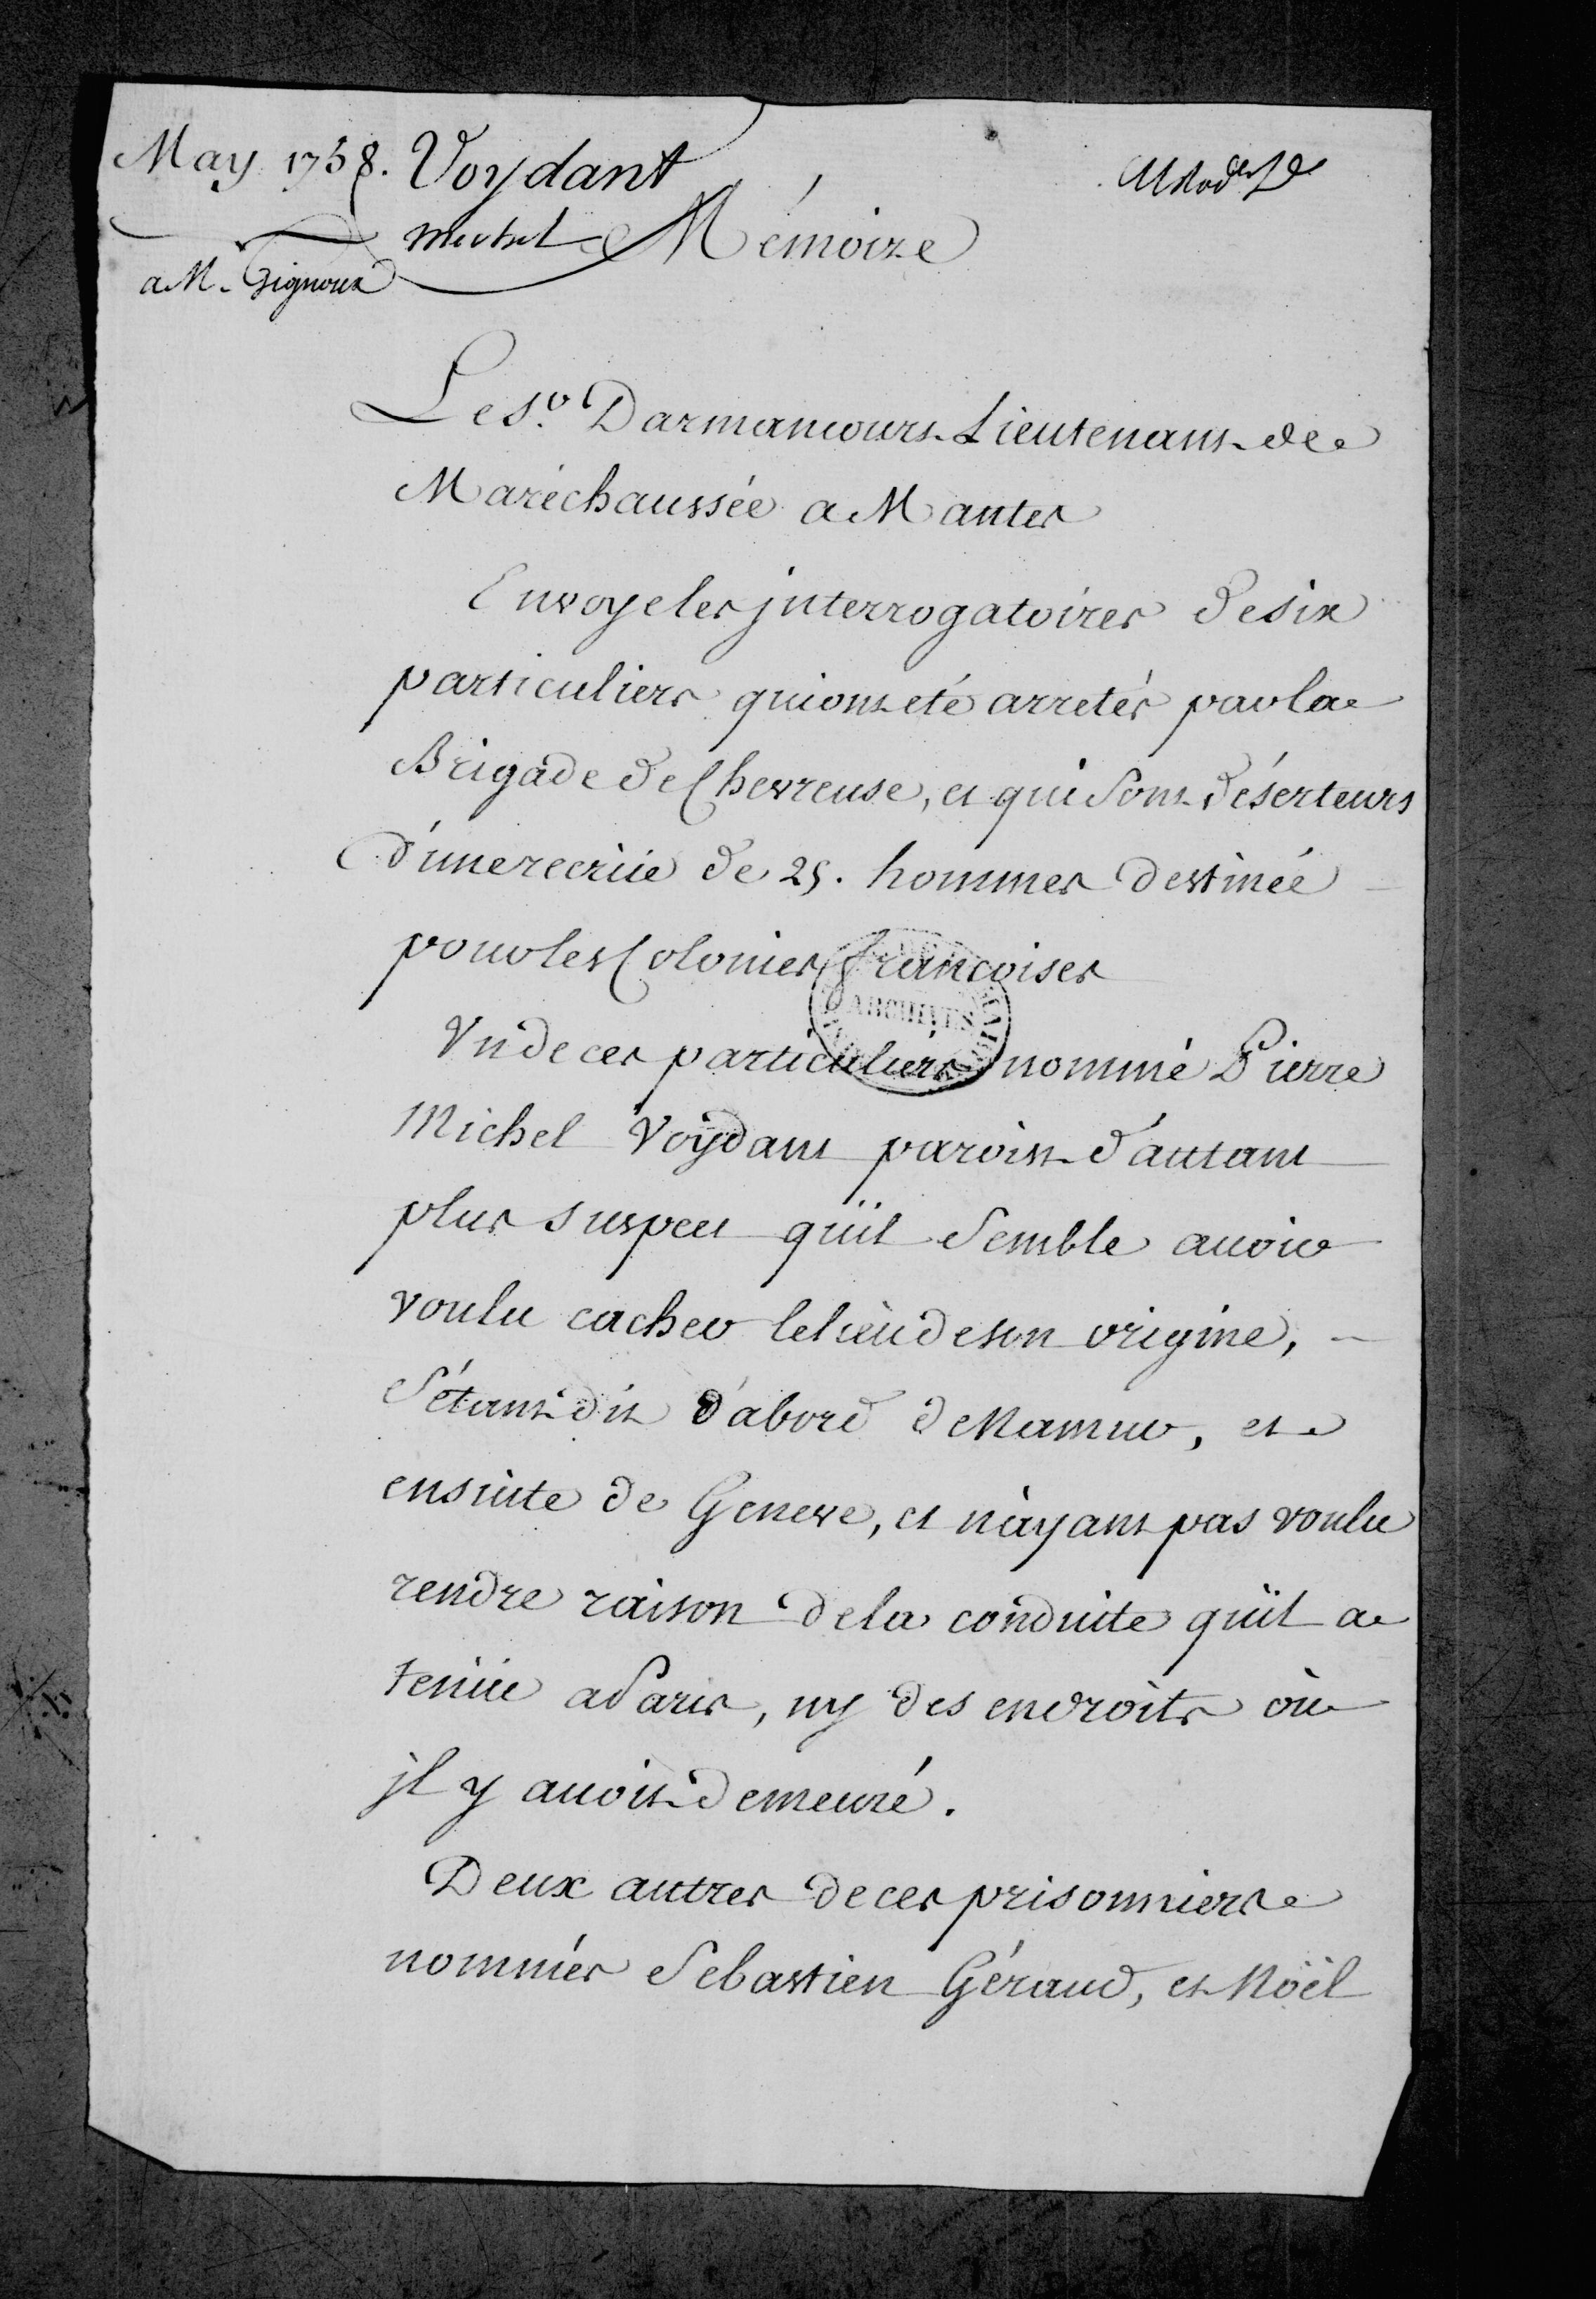 May 1758. Voydant
michel Mémoire
a M. Gignoux
Le Sr. Darmancourt Lieutenant de
Maréchaussée a Mantes
Envoye les jnterrogatoires de six
particuliers qui ont eté arretés par la
Brigade de Chevreuse, et qui sont déserteurs
d'une recrüe de 25. hommes destinée
pour les Colonies françoises
ARCHIVES
Un de ces particuliers nommé Pierre
Michel Voÿdant paroist d'autant
plus suspect qu'il semble avoir
voulu cacher le lieu de son origine,
s'étant dit d'abord de Namur, et
ensuite de Geneve, et n'ayant pas voulu
rendre raison de la conduite qu'il a
tenüe a Paris, ny des endroits où
jl y avoit demeuré.
Deux autres de ces prisonniers
nommés Sebastien Géraud, et Noël